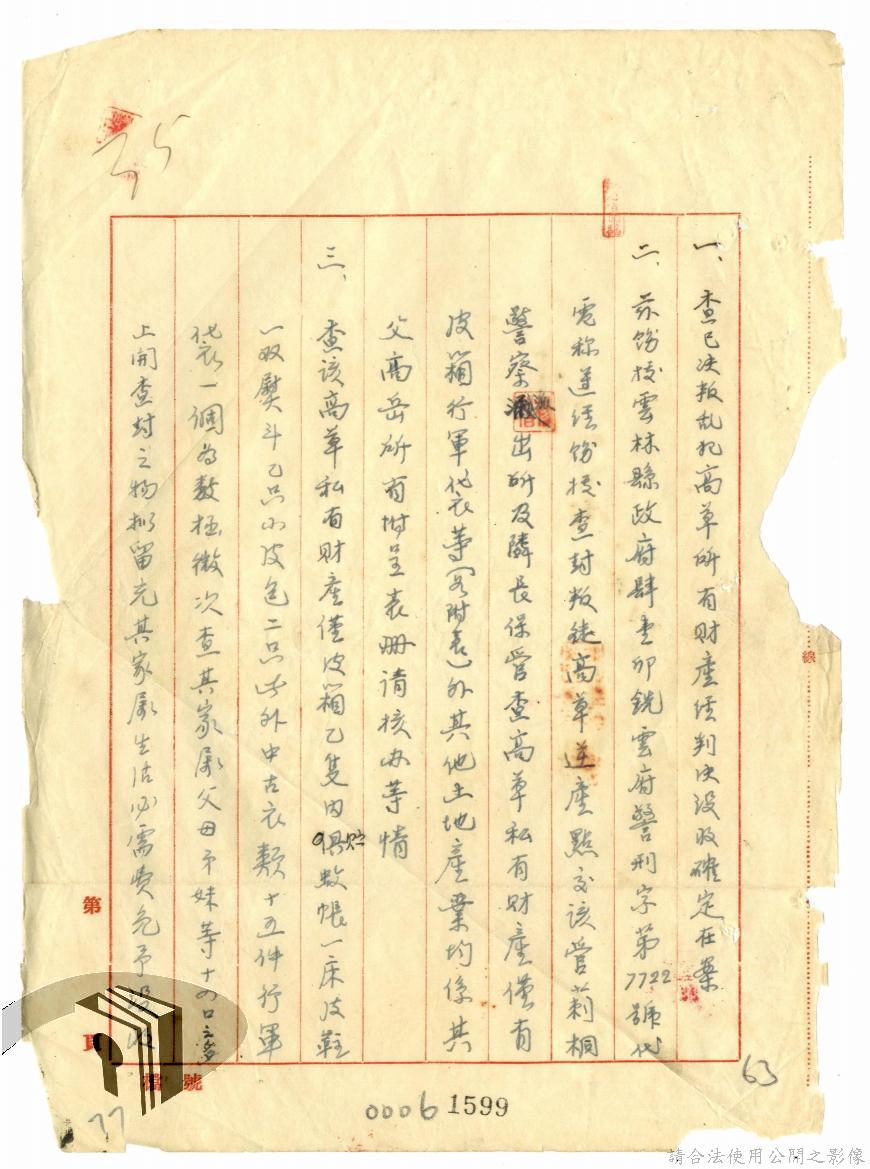 一、查已決叛乱犯高草所有財產經判決没收確定在案
二、茲飭按雲林縣政府肆壹卯銑雲府警刑字第7722號代
電称遵經飭按查封叛徒高草逆產點交該管莿桐
警察派出所及隣長保管查高草私有財產僅有
皮箱行軍袋等(另附表)外其他土地產業均係其
父高岳所有附呈表册請核办等情
三、查該高草私有財產僅皮箱乙隻内 蚊帳一床皮鞋
一双熨斗乙只小皮包二只此外中古衣類十五件行軍
袋一個為数極微次查其家屬父母弟妹等十 口之
上開查封之物拟留充其家屬生活必需費免予没收
線
第
頁
檔號
63
77
0006 1599
請合法使用公開之影像